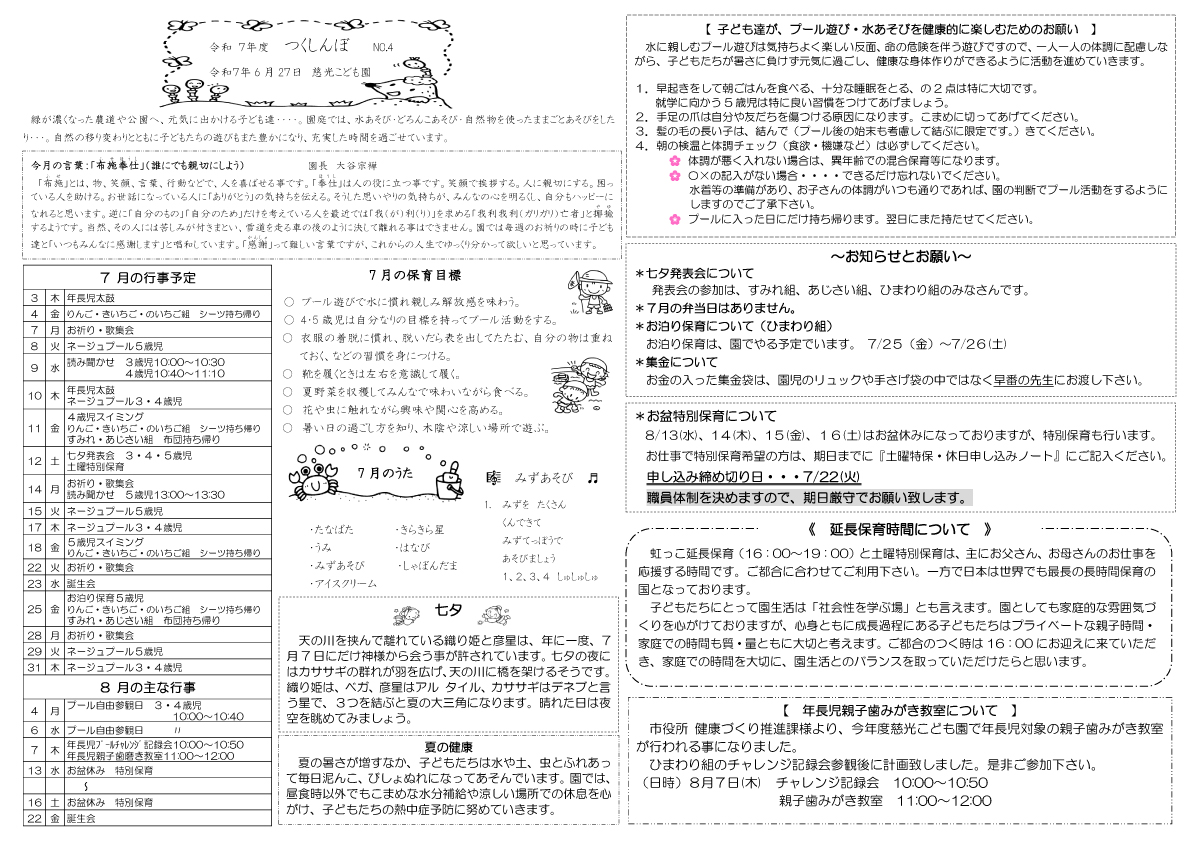 令和 7年度 つくしんぼ NO.4
令和7年6月27日 慈光こども園
緑が濃くなった農道や公園へ、元気に出かける子ども達・・・・。園庭では、水あそび・どろんこあそび・自然物を使ったままごとあそびをした
り・・・。自然の移り変わりとともに子どもたちの遊びもまた豊かになり、充実した時間を過ごせています。
今月の言葉:「布施奉仕」(誰にでも親切にしよう) 園長 大谷宗禅
「布施」とは、物、笑顔、言葉、行動などで、人を喜ばせる事です。「奉仕」は人の役に立つ事です。笑顔で挨拶する。人に親切にする。困っ
ている人を助ける。お世話になっている人に「ありがとう」の気持ちを伝える。そうした思いやりの気持ちが、みんなの心を明るくし、自分もハッピーに
なれると思います。逆に「自分のもの」「自分のため」だけを考えている人を最近では「我(が)利(り)」を求める「我利我利(ガリガリ)亡者」と揶揄
するようです。当然、その人には苦しみが付きまとい、雪道を走る車の後のように決して離れる事はできません。園では毎週のお祈りの時に子ども
達と「いつもみんなに感謝します」と唱和しています。「感謝」って難しい言葉ですが、これからの人生でゆっくり分かって欲しいと思っています。
7 月の行事予定
3 木 年長児太鼓
4 金 りんご・きいちご・のいちご組 シーツ持ち帰り
7 月 お祈り・歌集会
8 火 ネージュプール5歳児
9 水 読み聞かせ 3歳児10:00~10:30
4歳児10:40~11:10
10 木 年長児太鼓
ネージュプール3・4歳児
11 金 4歳児スイミング
りんご・きいちご・のいちご組 シーツ持ち帰り
すみれ・あじさい組 布団持ち帰り
12 土 七夕発表会 3・4・5歳児
土曜特別保育
14 月 お祈り・歌集会
読み聞かせ 5歳児13:00~13:30
15 火 ネージュプール5歳児
17 木 ネージュプール3・4歳児
18 金 5歳児スイミング
りんご・きいちご・のいちご組 シーツ持ち帰り
22 火 お祈り・歌集会
23 水 誕生会
25 金 お泊り保育5歳児
りんご・きいちご・のいちご組 シーツ持ち帰り
すみれ・あじさい組 布団持ち帰り
28 月 お祈り・歌集会
29 火 ネージュプール5歳児
31 木 ネージュプール3・4歳児
8 月の主な行事
4 月 プール自由参観日 3・4歳児
10:00~10:40
6 水 プール自由参観日 〃
7 木 年長児プールチャレンジ記録会10:00~10:50
年長児親子歯磨き教室11:00~12:00
13 水 お盆休み 特別保育
~
16 土 お盆休み 特別保育
22 金 誕生会
7月の保育目標
○ プール遊びで水に慣れ親しみ解放感を味わう。
○ 4・5歳児は自分なりの目標を持ってプール活動をする。
○ 衣服の着脱に慣れ、脱いだら表を出してたたむ、自分の物は重ね
ておく、などの習慣を身につける。
○ 靴を履くときは左右を意識して履く。
○ 夏野菜を収穫してみんなで味わいながら食べる。
○ 花や虫に触れながら興味や関心を高める。
○ 暑い日の過ごし方を知り、木陰や涼しい場所で遊ぶ。
7月のうた
・たなばた ・きらきら星
・うみ ・はなび
・みずあそび ・しゃぼんだま
・アイスクリーム
みずあそび
1. みずを たくさん
くんできて
みずてっぽうで
あそびましょう
1、2、3、4 しゅしゅしゅ
七夕
天の川を挟んで離れている織り姫と彦星は、年に一度、7
月7日にだけ神様から会う事が許されています。七夕の夜に
はカササギの群れが羽を広げ、天の川に橋を架けるそうです。
織り姫は、ベガ、彦星はアル タイル、カササギはデネブと言
う星で、3つを結ぶと夏の大三角になります。晴れた日は夜
空を眺めてみましょう。
夏の健康
夏の暑さが増すなか、子どもたちは水や土、虫とふれあっ
て毎日泥んこ、びしょぬれになってあそんでいます。園では、
昼食時以外でもこまめな水分補給や涼しい場所での休息を心
がけ、子どもたちの熱中症予防に努めていきます。
【 子ども達が、プール遊び・水あそびを健康的に楽しむためのお願い 】
水に親しむプール遊びは気持ちよく楽しい反面、命の危険を伴う遊びですので、一人一人の体調に配慮しな
がら、子どもたちが暑さに負けず元気に過ごし、健康な身体作りができるように活動を進めていきます。
1.早起きをして朝ごはんを食べる、十分な睡眠をとる、の2点は特に大切です。
就学に向かう5歳児は特に良い習慣をつけてあげましょう。
2.手足の爪は自分や友だちを傷つける原因になります。こまめに切ってあげてください。
3.髪の毛の長い子は、結んで(プール後の始末も考慮して結ぶに限定です。)きてください。
4.朝の検温と体調チェック(食欲・機嫌など)は必ずしてください。
体調が悪く入れない場合は、異年齢での混合保育等になります。
○×の記入がない場合・・・・できるだけ忘れないでください。
水着等の準備があり、お子さんの体調がいつも通りであれば、園の判断でプール活動をするように
しますのでご了承下さい。
プールに入った日にだけ持ち帰ります。翌日にまた持たせてください。
~お知らせとお願い~
*七夕発表会について
発表会の参加は、すみれ組、あじさい組、ひまわり組のみなさんです。
*7月の弁当日はありません。
*お泊り保育について(ひまわり組)
お泊り保育は、園でやる予定でいます。 7/25(金)~7/26(土)
*集金について
お金の入った集金袋は、園児のリュックや手さげ袋の中ではなく早番の先生にお渡し下さい。
*お盆特別保育について
8/13(水)、14(木)、15(金)、16(土)はお盆休みになっておりますが、特別保育も行います。
お仕事で特別保育希望の方は、期日までに『土曜特保・休日申し込みノート』にご記入ください。
申し込み締め切り日・・・7/22(火)
職員体制を決めますので、期日厳守でお願い致します。
《 延長保育時間について 》
虹っこ延長保育(16:00~19:00)と土曜特別保育は、主にお父さん、お母さんのお仕事を
応援する時間です。ご都合に合わせてご利用下さい。一方で日本は世界でも最長の長時間保育の
国となっております。
子どもたちにとって園生活は「社会性を学ぶ場」とも言えます。園としても家庭的な雰囲気づ
くりを心がけておりますが、心身ともに成長過程にある子どもたちはプライベートな親子時間・
家庭での時間も質・量ともに大切と考えます。ご都合のつく時は16:00にお迎えに来ていただ
き、家庭での時間を大切に、園生活とのバランスを取っていただけたらと思います。
【 年長児親子歯みがき教室について 】
市役所 健康づくり推進課様より、今年度慈光こども園で年長児対象の親子歯みがき教室
が行われる事になりました。
ひまわり組のチャレンジ記録会参観後に計画致しました。是非ご参加下さい。
(日時)8月7日(木) チャレンジ記録会 10:00~10:50
親子歯みがき教室 11:00~12:00